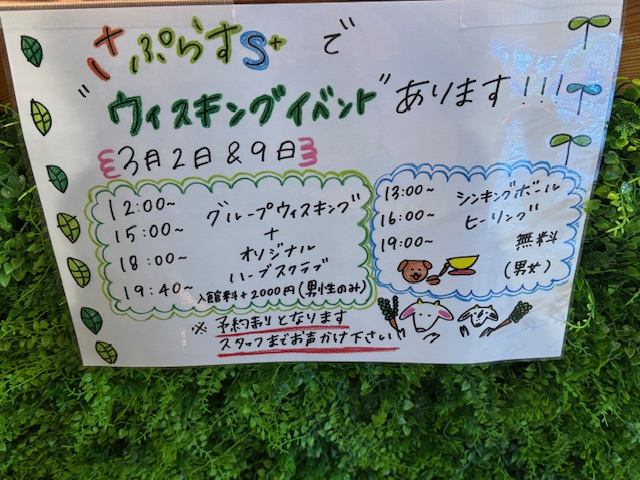 さぷらすS+ で
"ウィスキングイベント"あります!!!
3月2日&9日
12:00~
15:00~
18:00~
19:40~
グループウィスキング
+
オリジナル
ハーブスクラブ
入館料+2000円(男性のみ)
13:00~
16:00~
19:00~
シンキングボール
ヒーリング
無料
(男女)
※ 予約ありとなります
スタッフまでお声かけ下さい